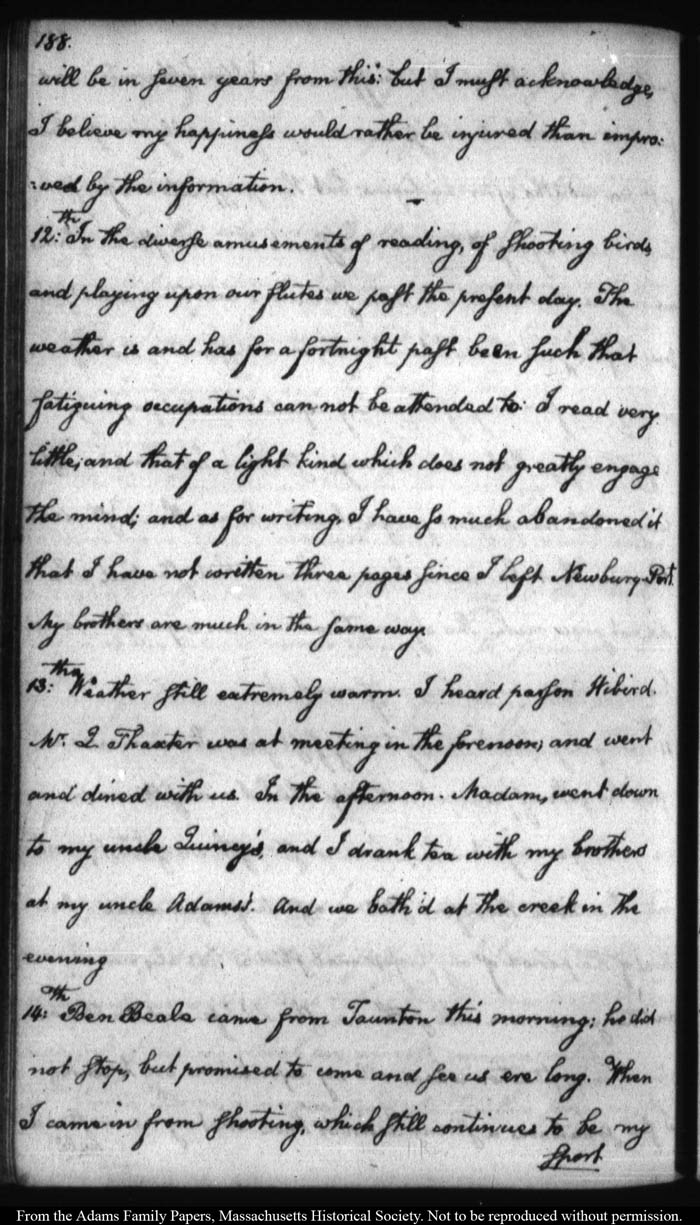 188.
will be in seven years from this: but I must acknowledge,
I believe my happiness would rather be injured than impro:
:ved by the information.
12:th In the diverse amusements of reading, of shooting birds,
and playing upon our flutes we past the present day. The
weather is and has for a fortnight past been such that
fatiguing occupations can not be attended to: I read very
little; and that of a light kind which does not greatly engage
the mind; and as for writing, I have so much abandoned it
that I have not written three pages since I left Newbury-Port.
My brothers are much in the same way.
13: Weather still extremely warm. I heard parson Wibird.
Mr. Q Thaxter was at meeting in the forenoon; and went
and dined with us. In the afternoon. Madam, went down
to my uncle Quincy's, and I drank tea with my brothers
at my uncle Adams's. And we bath'd at the creek in the
evening
14:th Ben Beale came from Taunton this morning; he did
not stop, but promised to come and see us ere long. When
I came in from shooting, which still continues to be my
sport
From the Adams Family Papers, Massachusetts Historical Society. Not to be reproduced without permission.